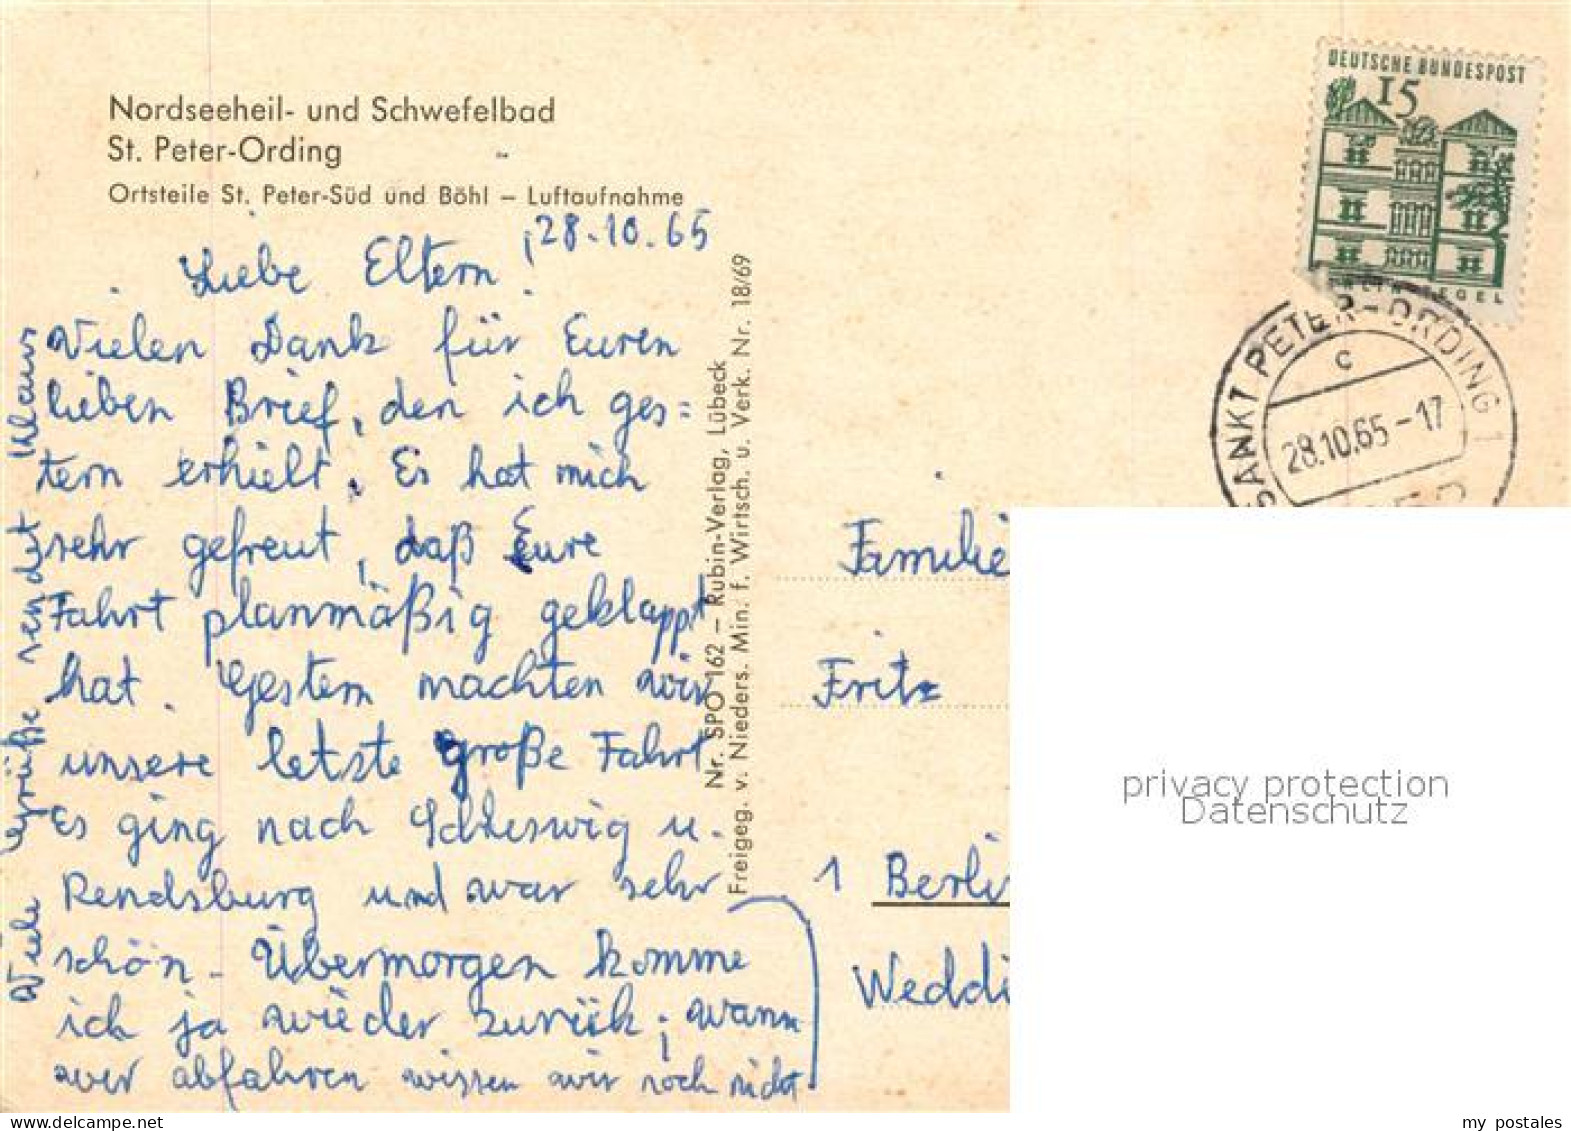 Nordseeheil- und Schwefelbad
St. Peter-Ording
Ortsteile St. Peter-Süd und Böhl – Luftaufnahme
28.10.65
Liebe Eltern!
Vielen Dank für Euren
lieben Brief, den ich ges=
tern erhielt. Es hat mich
sehr gefreut, daß Eure
Fahrt planmäßig geklappt
hat. Gestern machten wir
unsere letzte große Fahrt.
Es ging nach Schleswig u.
Rendsburg und war sehr
schön. Übermorgen komme
ich ja wieder zurück; wann
wir abfahren wissen wir noch nicht.
Viele Grüße sendet Klaus
Nr. SPO 162 – Rubin-Verlag, Lübeck
Freigeg. v. Nieders. Min. f. Wirtsch. u. Verk. Nr. 18/69
DEUTSCHE BUNDESPOST
15
TEGEL
SANKT PETER-ORDING 1
c
28.10.65-17
Familie
Fritz
1 Berlin
Weddi
privacy protection
Datenschutz
my postales